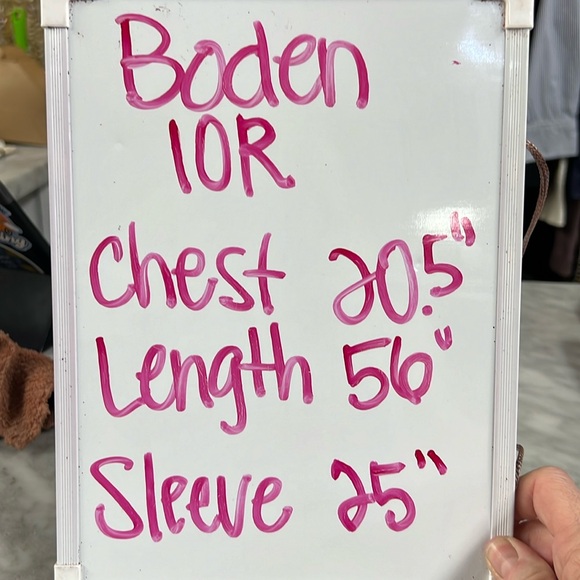 Boden
10R
Chest 20.5"
Length 56"
Sleeve 25"